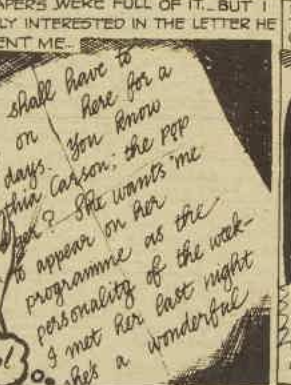 APERS WERE FULL OF IT... BUT I
LY INTERESTED IN THE LETTER HE
ENT ME...
shall have to
on here for a
days. You know
thia Carson; the pop
ger? She wants me
to appear on her
programme as the
personality of the week-
I met her last night
shes a wonderful